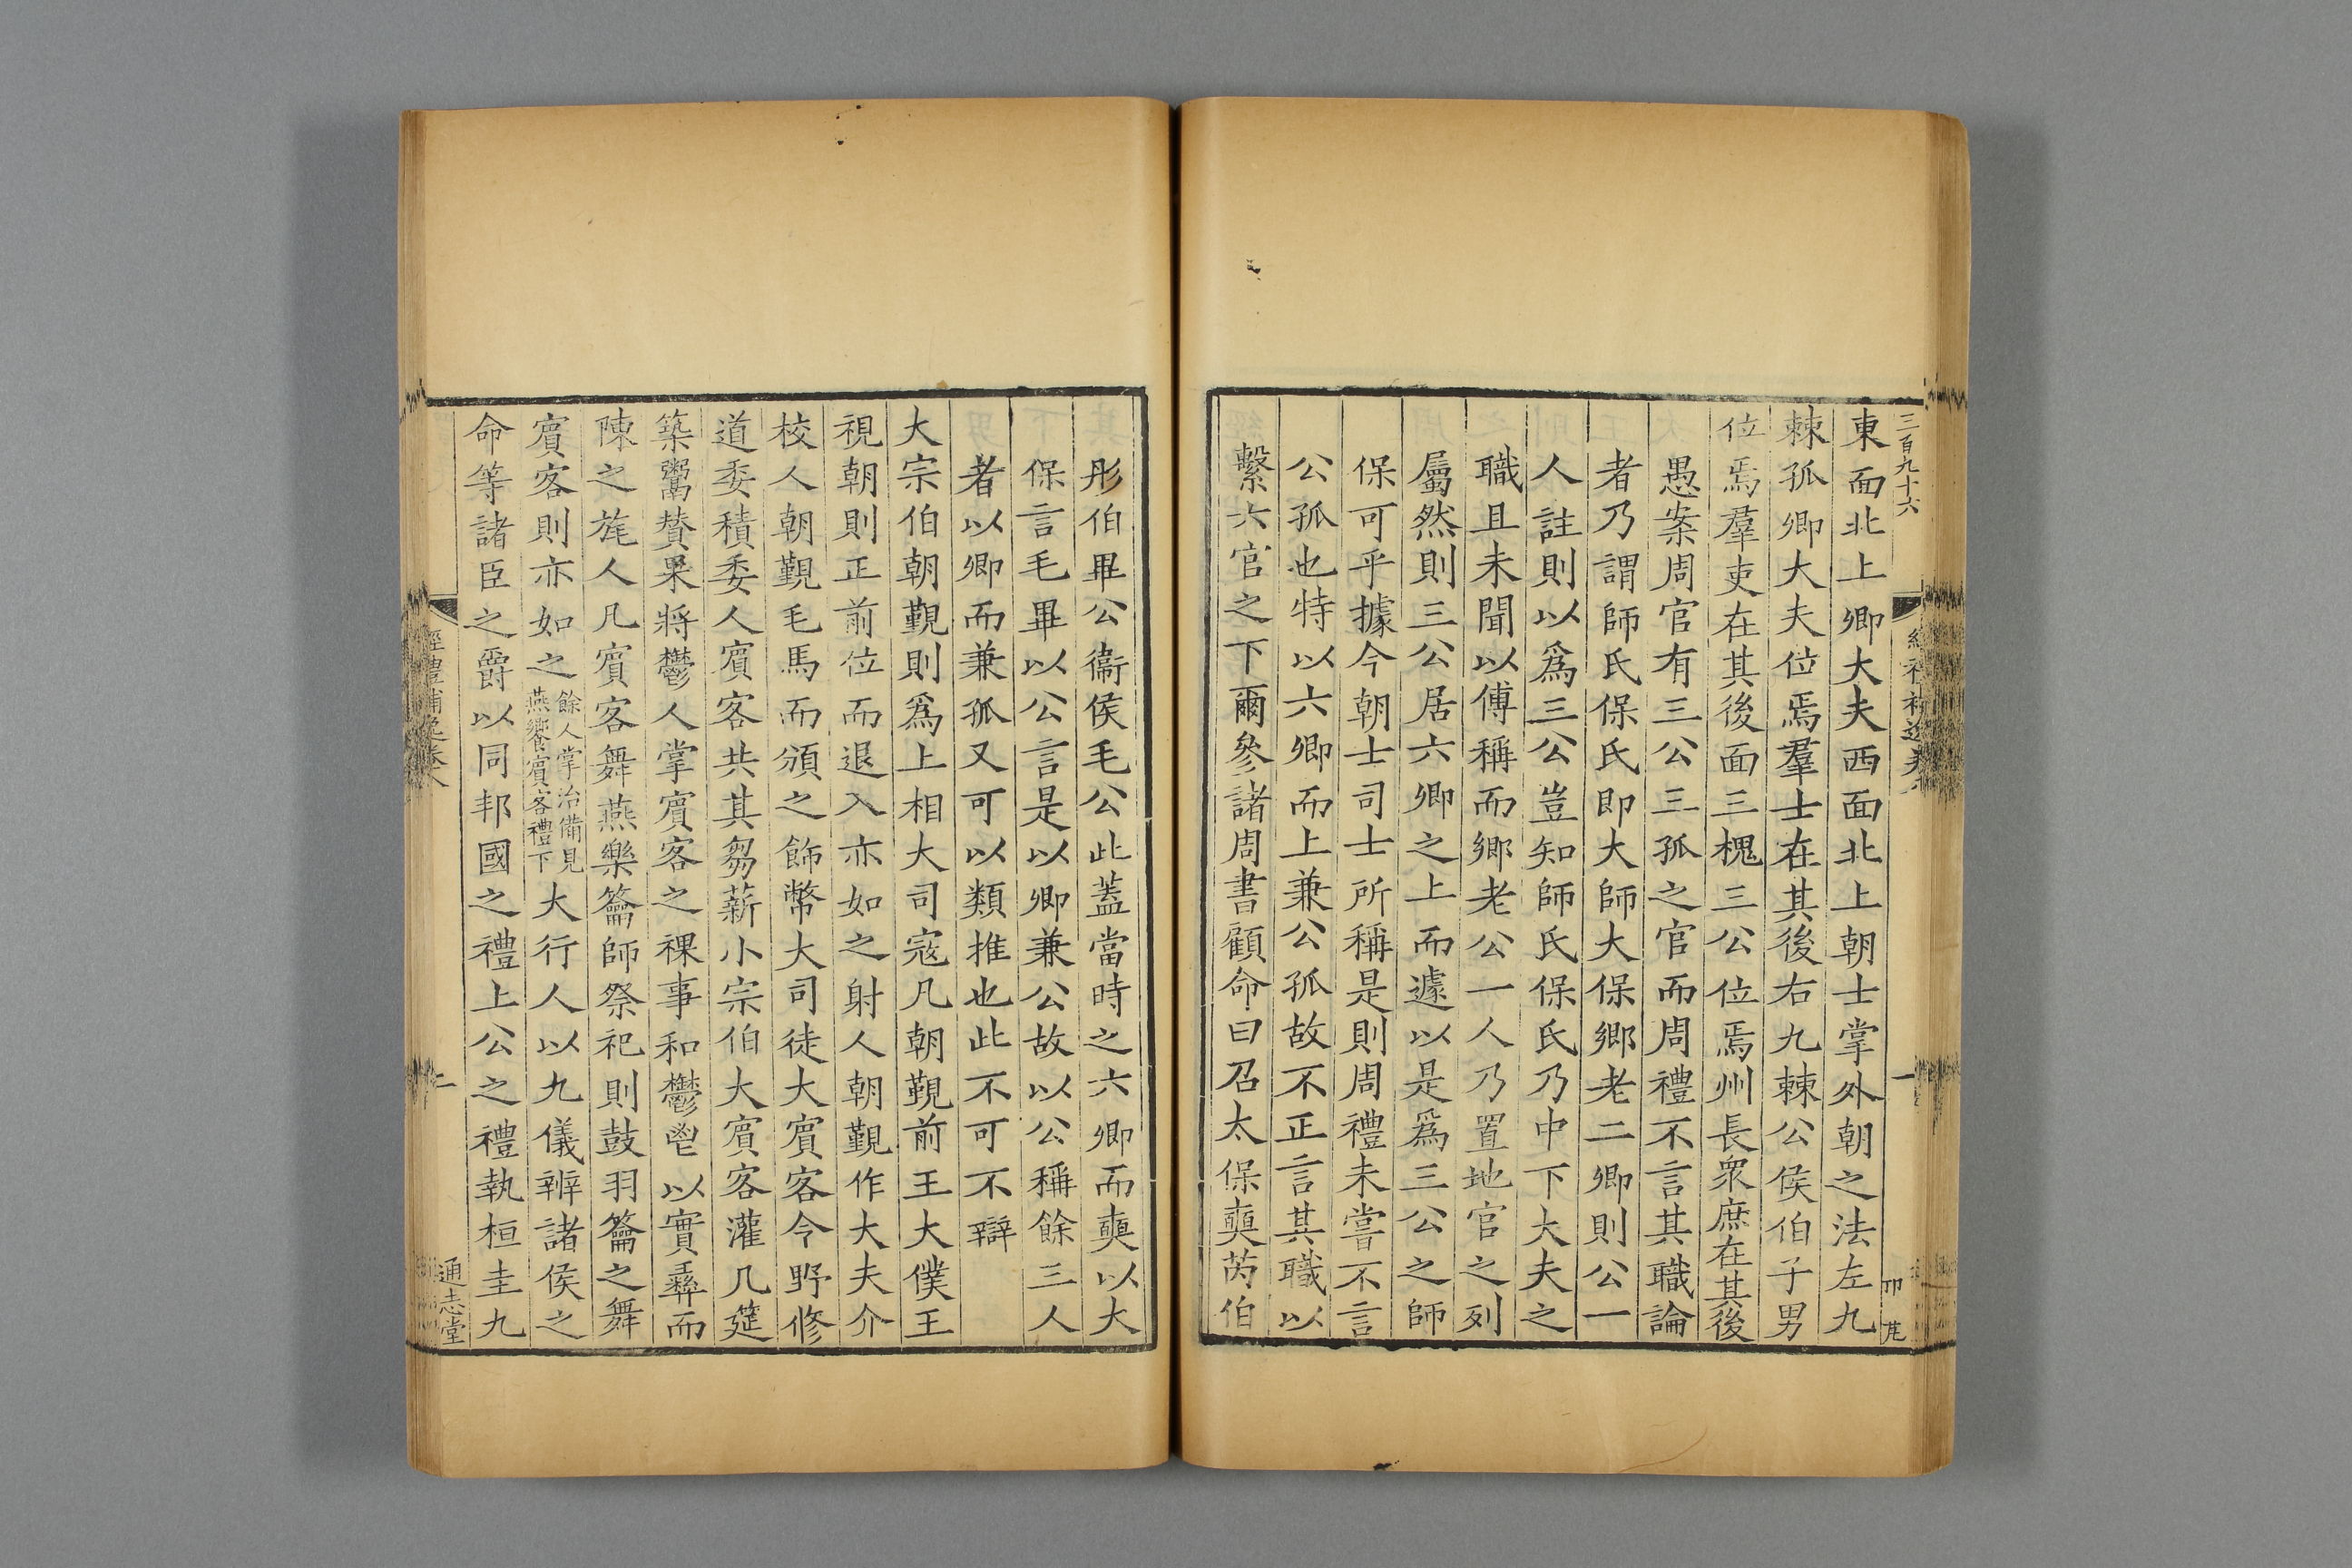 三百九十六
東面北上卿大夫西面北上朝士掌外朝之法左九
棘孤卿大夫位焉羣士在其後右九棘公侯伯子男
位焉羣吏在其後面三槐三公位焉州長眾庶在其後
愚案周官有三公三孤之官而周禮不言其職論
者乃謂師氏保氏即大師大保鄉老二卿則公一
人註則以爲三公豈知師氏保氏乃中下大夫之
職且未聞以傅稱而鄉老公一人乃置地官之列
屬然則三公居六卿之上而遽以是爲三公之師
保可乎據今朝士司士所稱是則周禮未嘗不言
公孤也特以六卿而上兼公孤故不正言其職以
繫六官之下爾參諸周書顧命曰召太保奭芮伯
彤伯畢公衞侯毛公此蓋當時之六卿而奭以大
保言毛畢以公言是以卿兼公故以公稱餘三人
者以卿而兼孤又可以類推也此不可不辯
大宗伯朝覲則爲上相大司寇凡朝覲前王大僕王
視朝則正前位而退入亦如之射人朝覲作大夫介
校人朝覲毛馬而頒之飾幣大司徒大賓客令野修
道委積委人賓客共其芻薪小宗伯大賓客灌几筵
築鬻贊果將鬱人掌賓客之祼事和鬱鬯以實彝而
陳之旄人凡賓客舞燕樂籥師祭祀則鼓羽籥之舞
賓客則亦如之餘人掌治備見燕饗賓客禮下大行人以九儀辨諸侯之
命等諸臣之爵以同邦國之禮上公之禮執桓圭九
經禮補逸卷八
二
通志堂